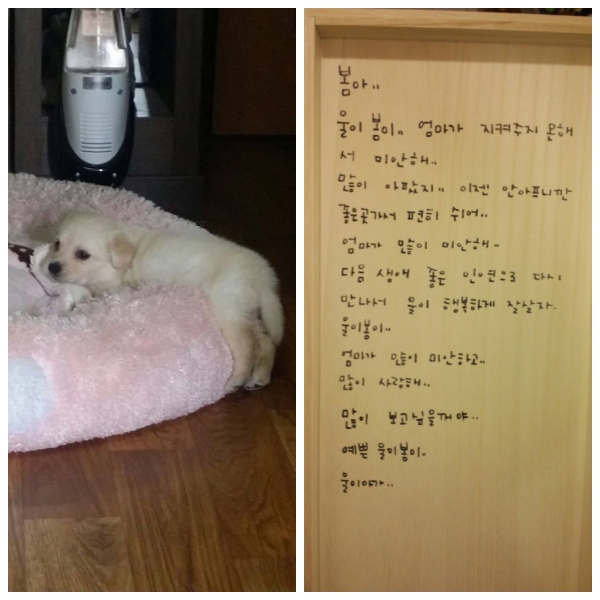 봄아..
울이 봄이.. 엄마가 지켜주지 못해
서 미안해..
많이 아팠지.. 이젠 안아프니깐
좋은곳가서 편히 쉬어..
엄마가 많이 미안해..
다음 생애 좋은 인연으로 다시
만나서 울이 행복하게 잘살자.
울이봄이..
엄마가 많이 미안하고..
많이 사랑해..
많이 보고싶을거야..
예쁜 울이봄이.
울이아가..